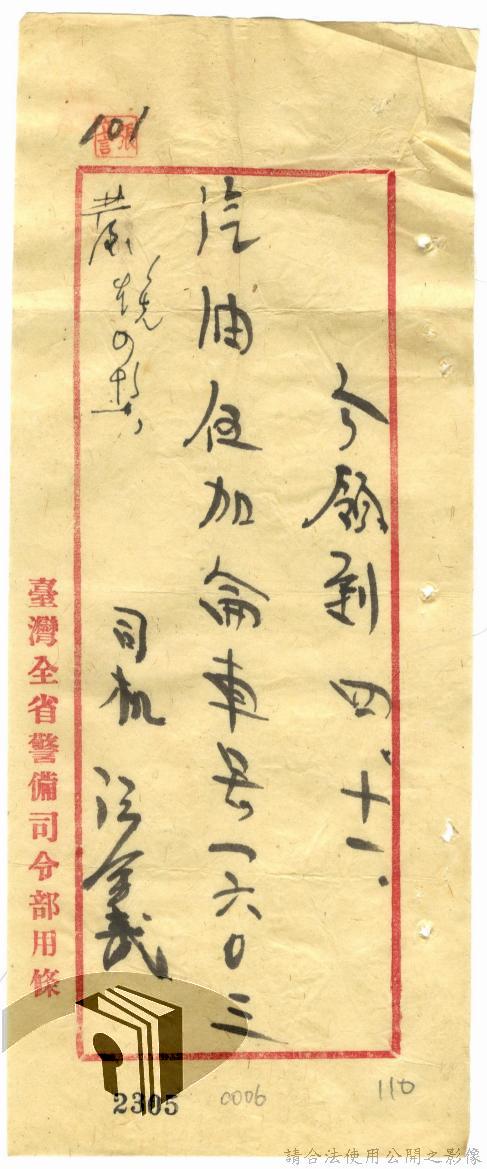 今領到四、十一、
汽油伍加侖車号一六〇三
司机
101
臺灣全省警備司令部用條
2305
0006
110
請合法使用公開之影像